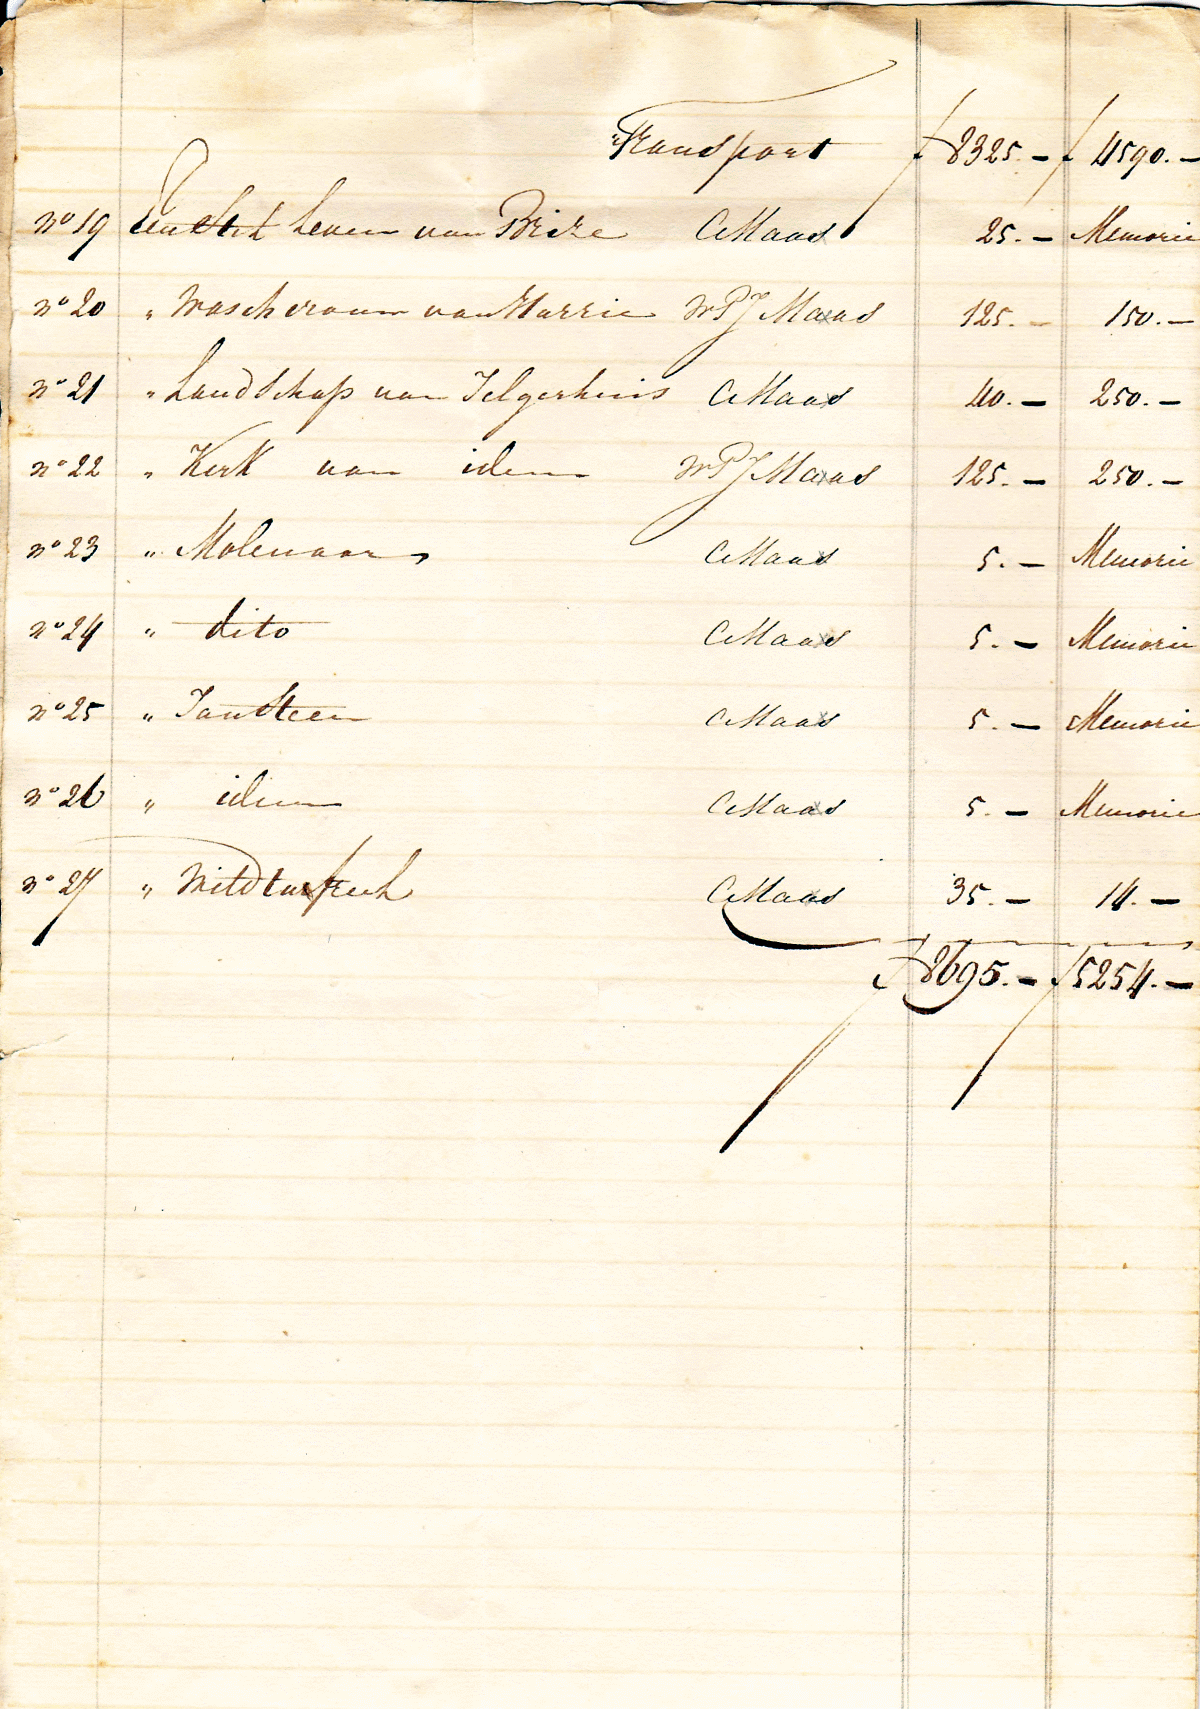 Transport f 8325.- f 4590.-
no 19 Een Stil Leven van Brize C Maas 25.- Memorie
no 20 " Waschvrouw van Harrie W P J Maas 125.- 150.-
no 21 " Landschap van Jelgerhuis C Maas 40.- 250.-
no 22 " Kerk van idem W P J Maas 125.- 250.-
no 23 " Molenaar C Maas 5.- Memorie
no 24 " dito C Maas 5.- Memorie
no 25 " Jan Steen C Maas 5.- Memorie
no 26 " idem C Maas 5.- Memorie
no 27 " C Maas 35.- 14.-
f 8695.- f 5254.-